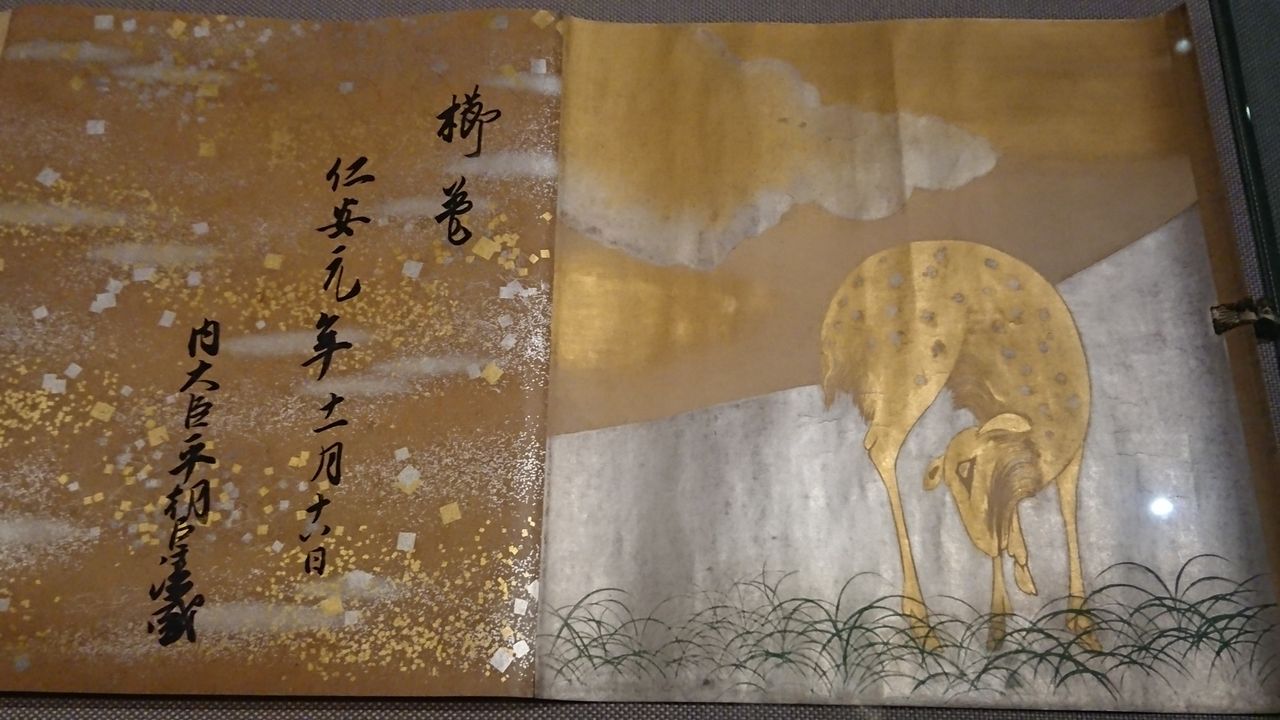 櫛
仁安元年十一月十八日
内大臣平朝臣清盛